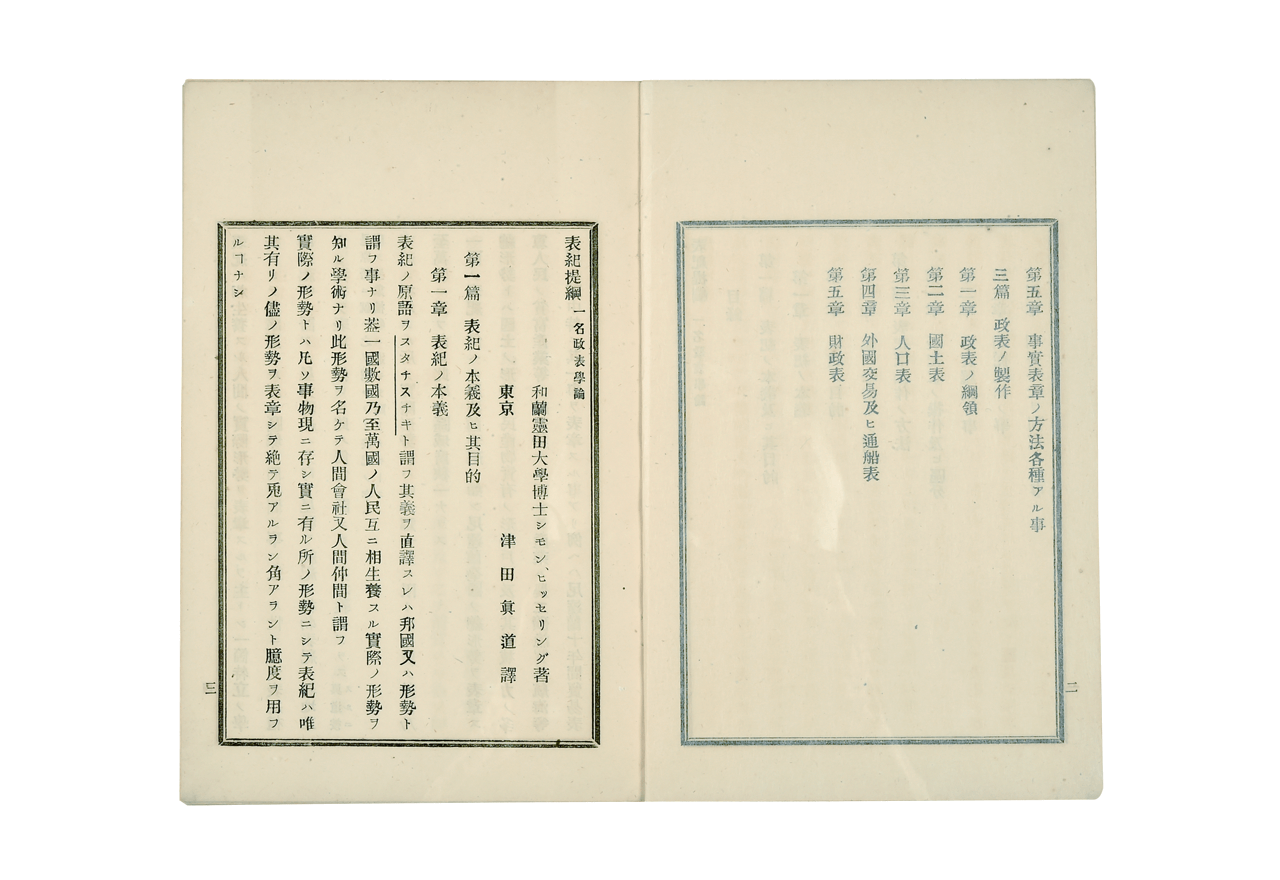 第五章　事實表章ノ方法各種アル事
三篇　政表ノ製作
第一章　政表ノ綱領
第二章　國土表
第三章　人口表
第四章　外國交易及ヒ通船表
第五章　財政表
二
表紀提綱 一名政表學論
和蘭靈田大學博士シモン、ヒッセリング著
東京　津田眞道譯
第一篇　表紀ノ本義及ヒ其目的
第一章　表紀ノ本義
表紀ノ原語ヲスタチスチキト謂フ其義ヲ直譯スレハ邦國又ハ形勢ト
謂フ事ナリ葢一國數國乃至萬國ノ人民互ニ相生養スル實際ノ形勢ヲ
知ル學術ナリ此形勢ヲ名ケテ人間會社又人間仲間ト謂フ
實際ノ形勢トハ凡ソ事物現ニ存シ實ニ有ル所ノ形勢ニシテ表紀ハ唯
其有リノ儘ノ形勢ヲ表章シテ絶テ兎アルラン角アラント臆度ヲ用フ
ルヿナシ
三